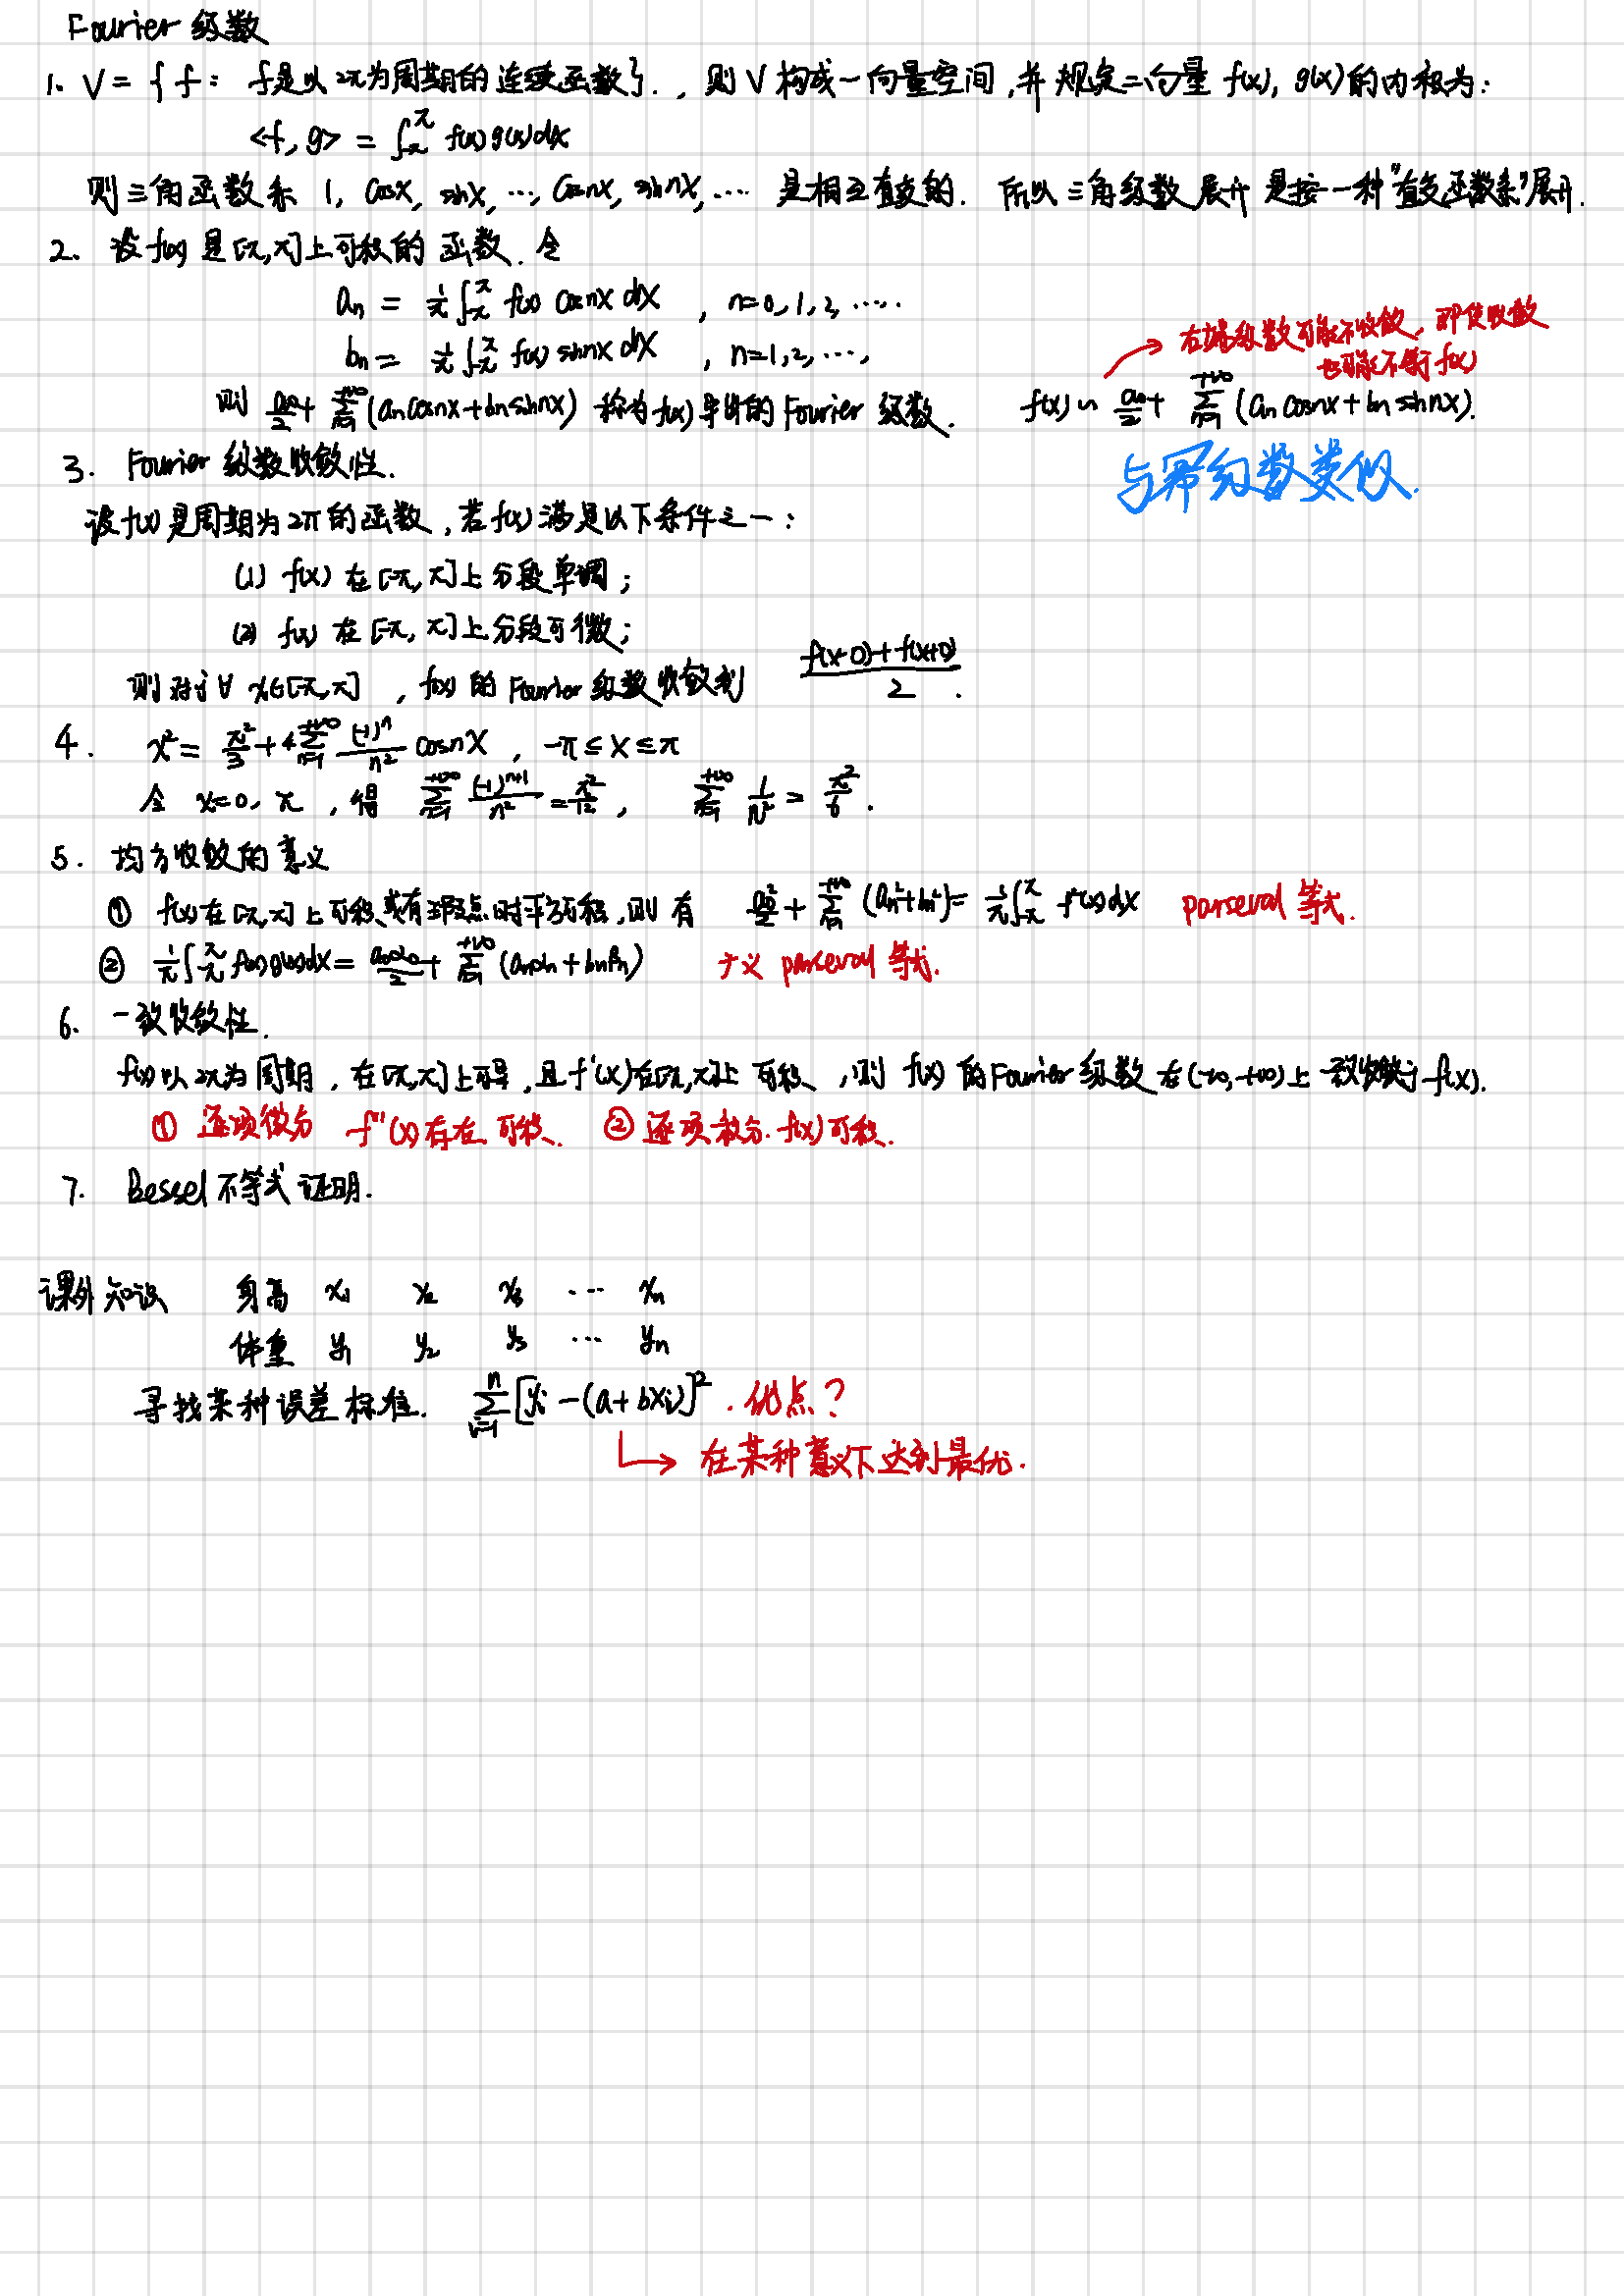 Fourier 级数
1. V = { f : f是以2π为周期的连续函数}., 则 V 构成一向量空间,并规定二向量 f(x), g(x)的内积为:
<f, g> = ∫_{-π}^{π} f(x)g(x)dx
则三角函数系 1, cosx, sinx, …, cosnx, sinnx, … 是相互直交的. 所以三角级数展开是按一种"直交函数系"展开.
2. 设f(x)是[-π,π]上可积的函数. 令
a_n = 1/π ∫_{-π}^{π} f(x) cosnx dx , n=0,1,2, …..
b_n = 1/π ∫_{-π}^{π} f(x) sinnx dx , n=1,2,…,
右端级数可能不收敛, 即使收敛
也可能不等于f(x)
则 a_0/2 + ∑_{n=1}^{+∞} (a_n cosnx + b_n sinnx) 称为f(x)导出的Fourier 级数. f(x) ~ a_0/2 + ∑_{n=1}^{+∞} (a_n cosnx + b_n sinnx).
与幂级数类似.
3. Fourier 级数收敛性.
设f(x)是周期为2π的函数, 若f(x)满足以下条件之一:
(1) f(x) 在[-π, π]上分段单调;
(2) f(x) 在[-π, π]上分段可微;
则对于∀ x∈[-π,π] , f(x) 的 Fourier 级数收敛到 (f(x-0)+f(x+0))/2 .
4. x² = π²/3 + 4∑_{n=1}^{+∞} (-1)^n/n² cosnx , -π ≤ x ≤ π
令 x=0, π , 得 ∑_{n=1}^{+∞} (-1)^{n+1}/n² = π²/12 , ∑_{n=1}^{+∞} 1/n² = π²/6 .
5. 均方收敛的意义
① f(x)在[-π,π]上可积或有瑕点时平方可积,则有 a_0²/2 + ∑_{n=1}^{+∞} (a_n²+b_n²) = 1/π ∫_{-π}^{π} f²(x)dx parseval 等式.
② 1/π ∫_{-π}^{π} f(x)g(x)dx = a_0α_0/2 + ∑_{n=1}^{+∞} (a_nα_n + b_nβ_n) 广义 parseval 等式.
6. 一致收敛性.
f(x)以2π为周期, 在[-π,π]上可导, 且f'(x)在[-π,π]上可积, 则 f(x) 的Fourier 级数在(-∞, +∞)上一致收敛于f(x).
① 逐项微分 f''(x)存在可积. ② 逐项积分. f(x)可积.
7. Bessel不等式证明.
课外知识 身高 x₁ x₂ x₃ … x_n
体重 y₁ y₂ y₃ … y_n
寻找某种误差标准. ∑_{i=1}^{n} [y_i - (a + bx_i)]² . 优点?
在某种意义下达到最优.